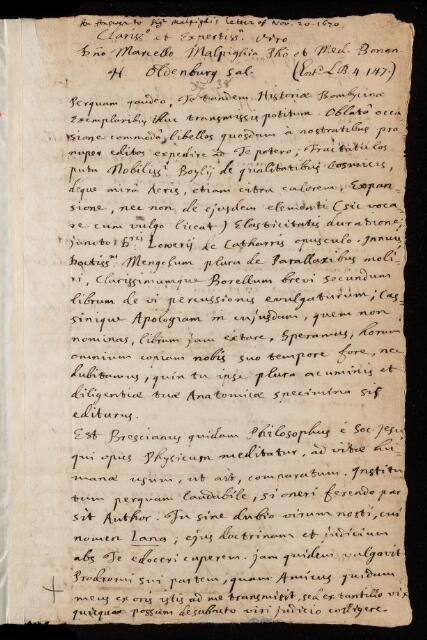 An Answer to Sigr Malpighi's letter of Nov. 20. 1670.
Clarissº et Expertissº Viro
Dno Marcello Malpighio Phō et Med. Bonon.
H. Oldenburg Sal. (Entd LB. 4. 147.)
Perquam gaudeo, Te tandem Historiæ Bombycinæ
Exemplaribus illuc transmissis potitum. Oblatâ occa
sione commodâ, libellos quosdam à nostratibus pro
nuper editos expedire ad Te potero; Tractatulos
puta Nobiliss. Boylij de qualitatibus Cosmicis,
déque mirâ Aeris, etiam citra calorem, Expan-
sione, nec non de ejusdem elementi (sic voca
re cum vulgo liceat) Elasticitatis duratione;
juncto Dris Loweri de Catharris opusculo. Innuis
Doctissm Mengolum plura de Parallaxibus moli-
ri, Clarissimumque Borellum brevi secundum
librum de vi percussionis evulgaturum; Cas-
sinique Apologiam in cujusdam, quem non
nominas, librum jam extare. Speramus, horum
omnium copiam nobis suo tempore fore, nec
dubitamus, quin tu ipse plura acuminis et
diligentiæ tuæ Anatomicæ specimina sis
editurus.
Est Brescianus quidam Philosophus è Soc. Jesu
qui opus Physicum meditatur, ad vitæ hu-
manæ usum, ut ait, comparatum. Institu
tum perquam laudabile, si oneri ferendo par
sit Author. Tu sine dubio virum nosti, cui
nomen Lana; ejus doctrinam et judicium
abs Te edoceri cuperem. jam quidem vulgavit
Prodromi sui partem, quam Amicus quidam
meus ex oris istis ad me transmisit, sed ex tantillo vix
quicquam possum de subacto viri judicio colligere